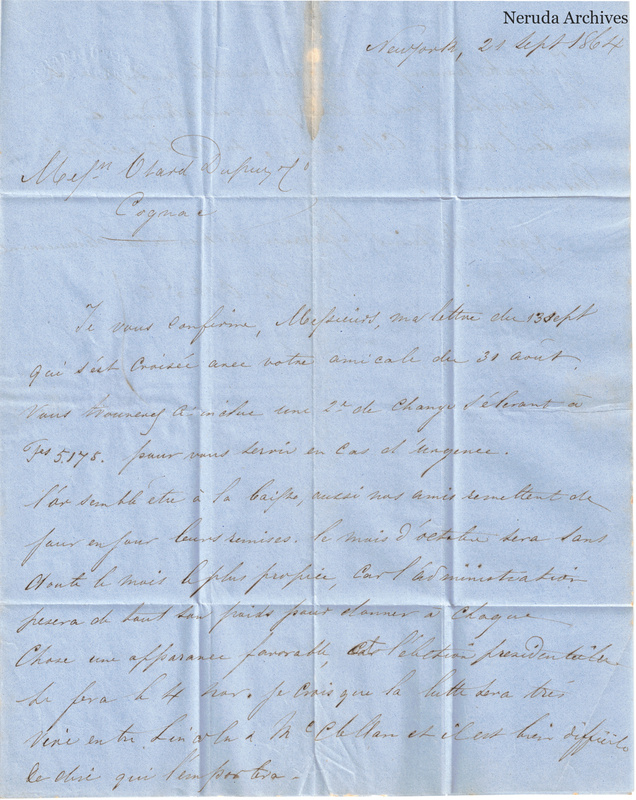 Neruda Archives
New York, 21 Sept 1864
Messrs Otard Dupuy & Co
Cognac
Je vous confirme, Messieurs, ma lettre du 13 Sept
qui s'est croisée avec votre amicale du 31 août.
Vous trouverez ci-inclus une 2de de change s'élevant à
Frs 5.175. pour vous servir en cas d'urgence.
l'or semble être à la baisse, aussi nos amis remettent de
jour en jour leurs remises. le mois d'octobre sera sans
doute le mois le plus propice, car l'administration
pesera de tout son poids pour donner à chaque
chose une apparance favorable, car l'élection presidentielle
se fera le 4 nov. je crois que la lutte sera très
vive entre Lincoln & Mc Clellan et il est bien difficile
de dire qui l'emportera.